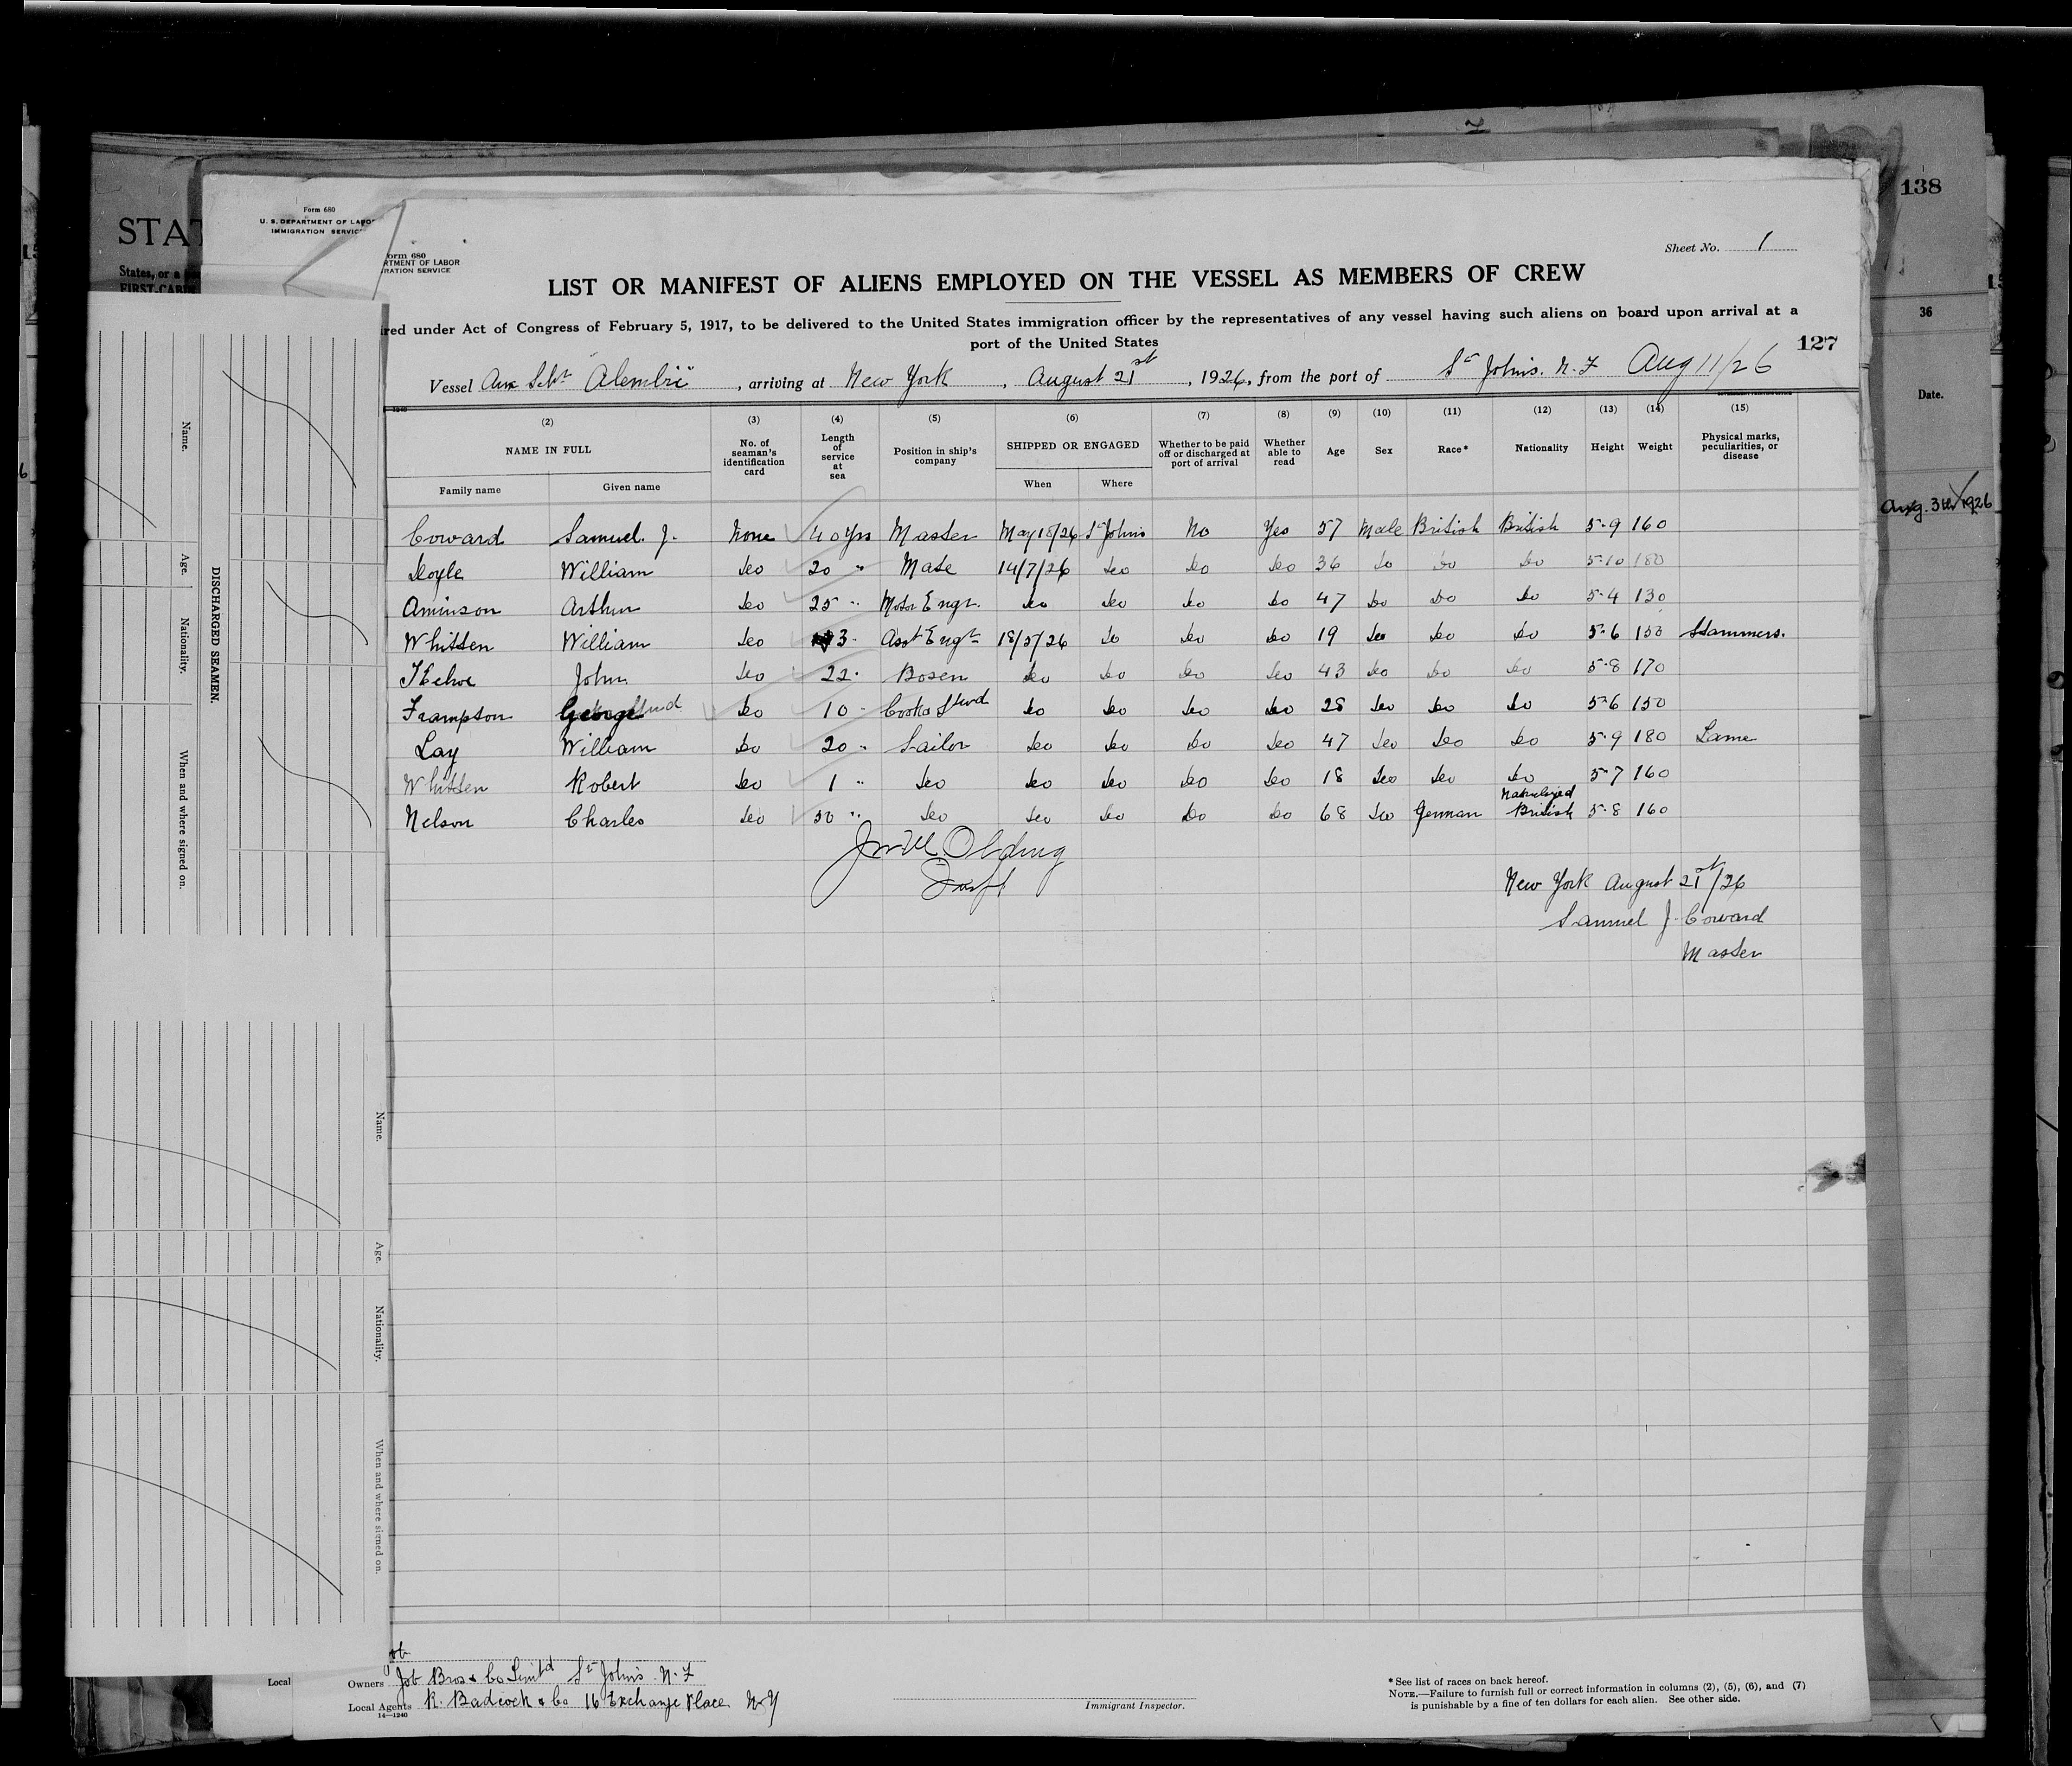 138
STAT
States, or a
FIRST-CABIN
36
Date.
Aug. 31st 1926
Form 680
U. S. DEPARTMENT OF LABOR
IMMIGRATION SERVICE
orm 680
RTMENT OF LABOR
RATION SERVICE
Sheet No. 1
LIST OR MANIFEST OF ALIENS EMPLOYED ON THE VESSEL AS MEMBERS OF CREW
ired under Act of Congress of February 5, 1917, to be delivered to the United States immigration officer by the representatives of any vessel having such aliens on board upon arrival at a
port of the United States
127
Vessel Aux Schr "Alembic", arriving at New York, August 21st, 1926, from the port of St Johns. N. F Aug 11/26
(2) (3) (4) (5) (6) (7) (8) (9) (10) (11) (12) (13) (14) (15)
NAME IN FULL No. of seaman's identification card Length of service at sea Position in ship's company SHIPPED OR ENGAGED Whether to be paid off or discharged at port of arrival Whether able to read Age Sex Race* Nationality Height Weight Physical marks, peculiarities, or disease
Family name Given name When Where
Coward Samuel. J. None 40 Yrs Master May 18/26 St Johns No Yes 57 Male British British 5-9 160
Doyle William do 20 " Mate 14/7/26 do do do 36 do do do 5-10 180
Aminson Arthur do 25 " Motor Engr. do do do do 47 do do do 5-4 130
Whitten William do 3 " Asst Engr 18/5/26 do do do 19 do do do 5-6 150 Stammers.
Kehoe John do 22 " Bosen do do do do 43 do do do 5-8 170
Frampton George do 10 " Cook & Stwd do do do do 28 do do do 5-6 150
Lay William do 20 " Sailor do do do do 47 do do do 5-9 180 Lame
Whitten Robert do 1 " do do do do do 18 do do do 5-7 160
Nelson Charles do 50 " do do do do do 68 do German Naturalized British 5-8 160
Olding
Insp
New York August 21st/26
Samuel J. Coward
Master
Name.
Age.
Nationality.
When and where signed on.
DISCHARGED SEAMEN.
Name.
Age.
Nationality.
When and where signed on.
Local
Owners Job Bros & Co Limtd St Johns N. F
Local Agents R. Badcock & Co 16 Exchange Place N Y
14—1240
Immigrant Inspector.
*See list of races on back hereof.
NOTE.—Failure to furnish full or correct information in columns (2), (5), (6), and (7)
is punishable by a fine of ten dollars for each alien. See other side.